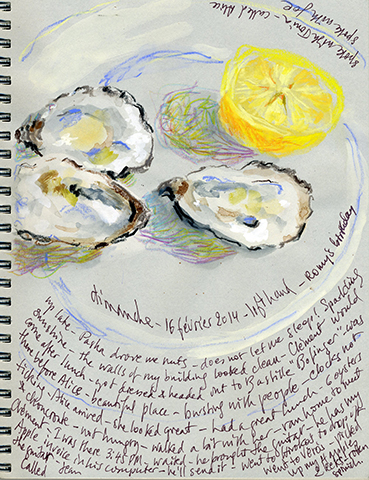 spoke with Tomi - called Alice
spoke with Joe
dimanche - 16 février 2014 - left hand - Romy's birthday
up late. Pasha drove us nuts - does not let me sleep! Sparkling
sunshine - the walls of my building looked clean - Clement would
come after lunch - got dressed & headed out to Bastille Bofinger - was
there before Alice - beautiful place - buzzing with people - clocks not
ticking. Alice arrived - she looked great - had a great lunch - 6 oysters
& choucroute - not hungry - walked a bit with her - ran home to meet
Clément - I was there 3:45 PM - waited - he brought the guitar - he has my
Apple invoice in his computer - he'll send it - went to
the guitar - went to
called Jem
up my
spinach